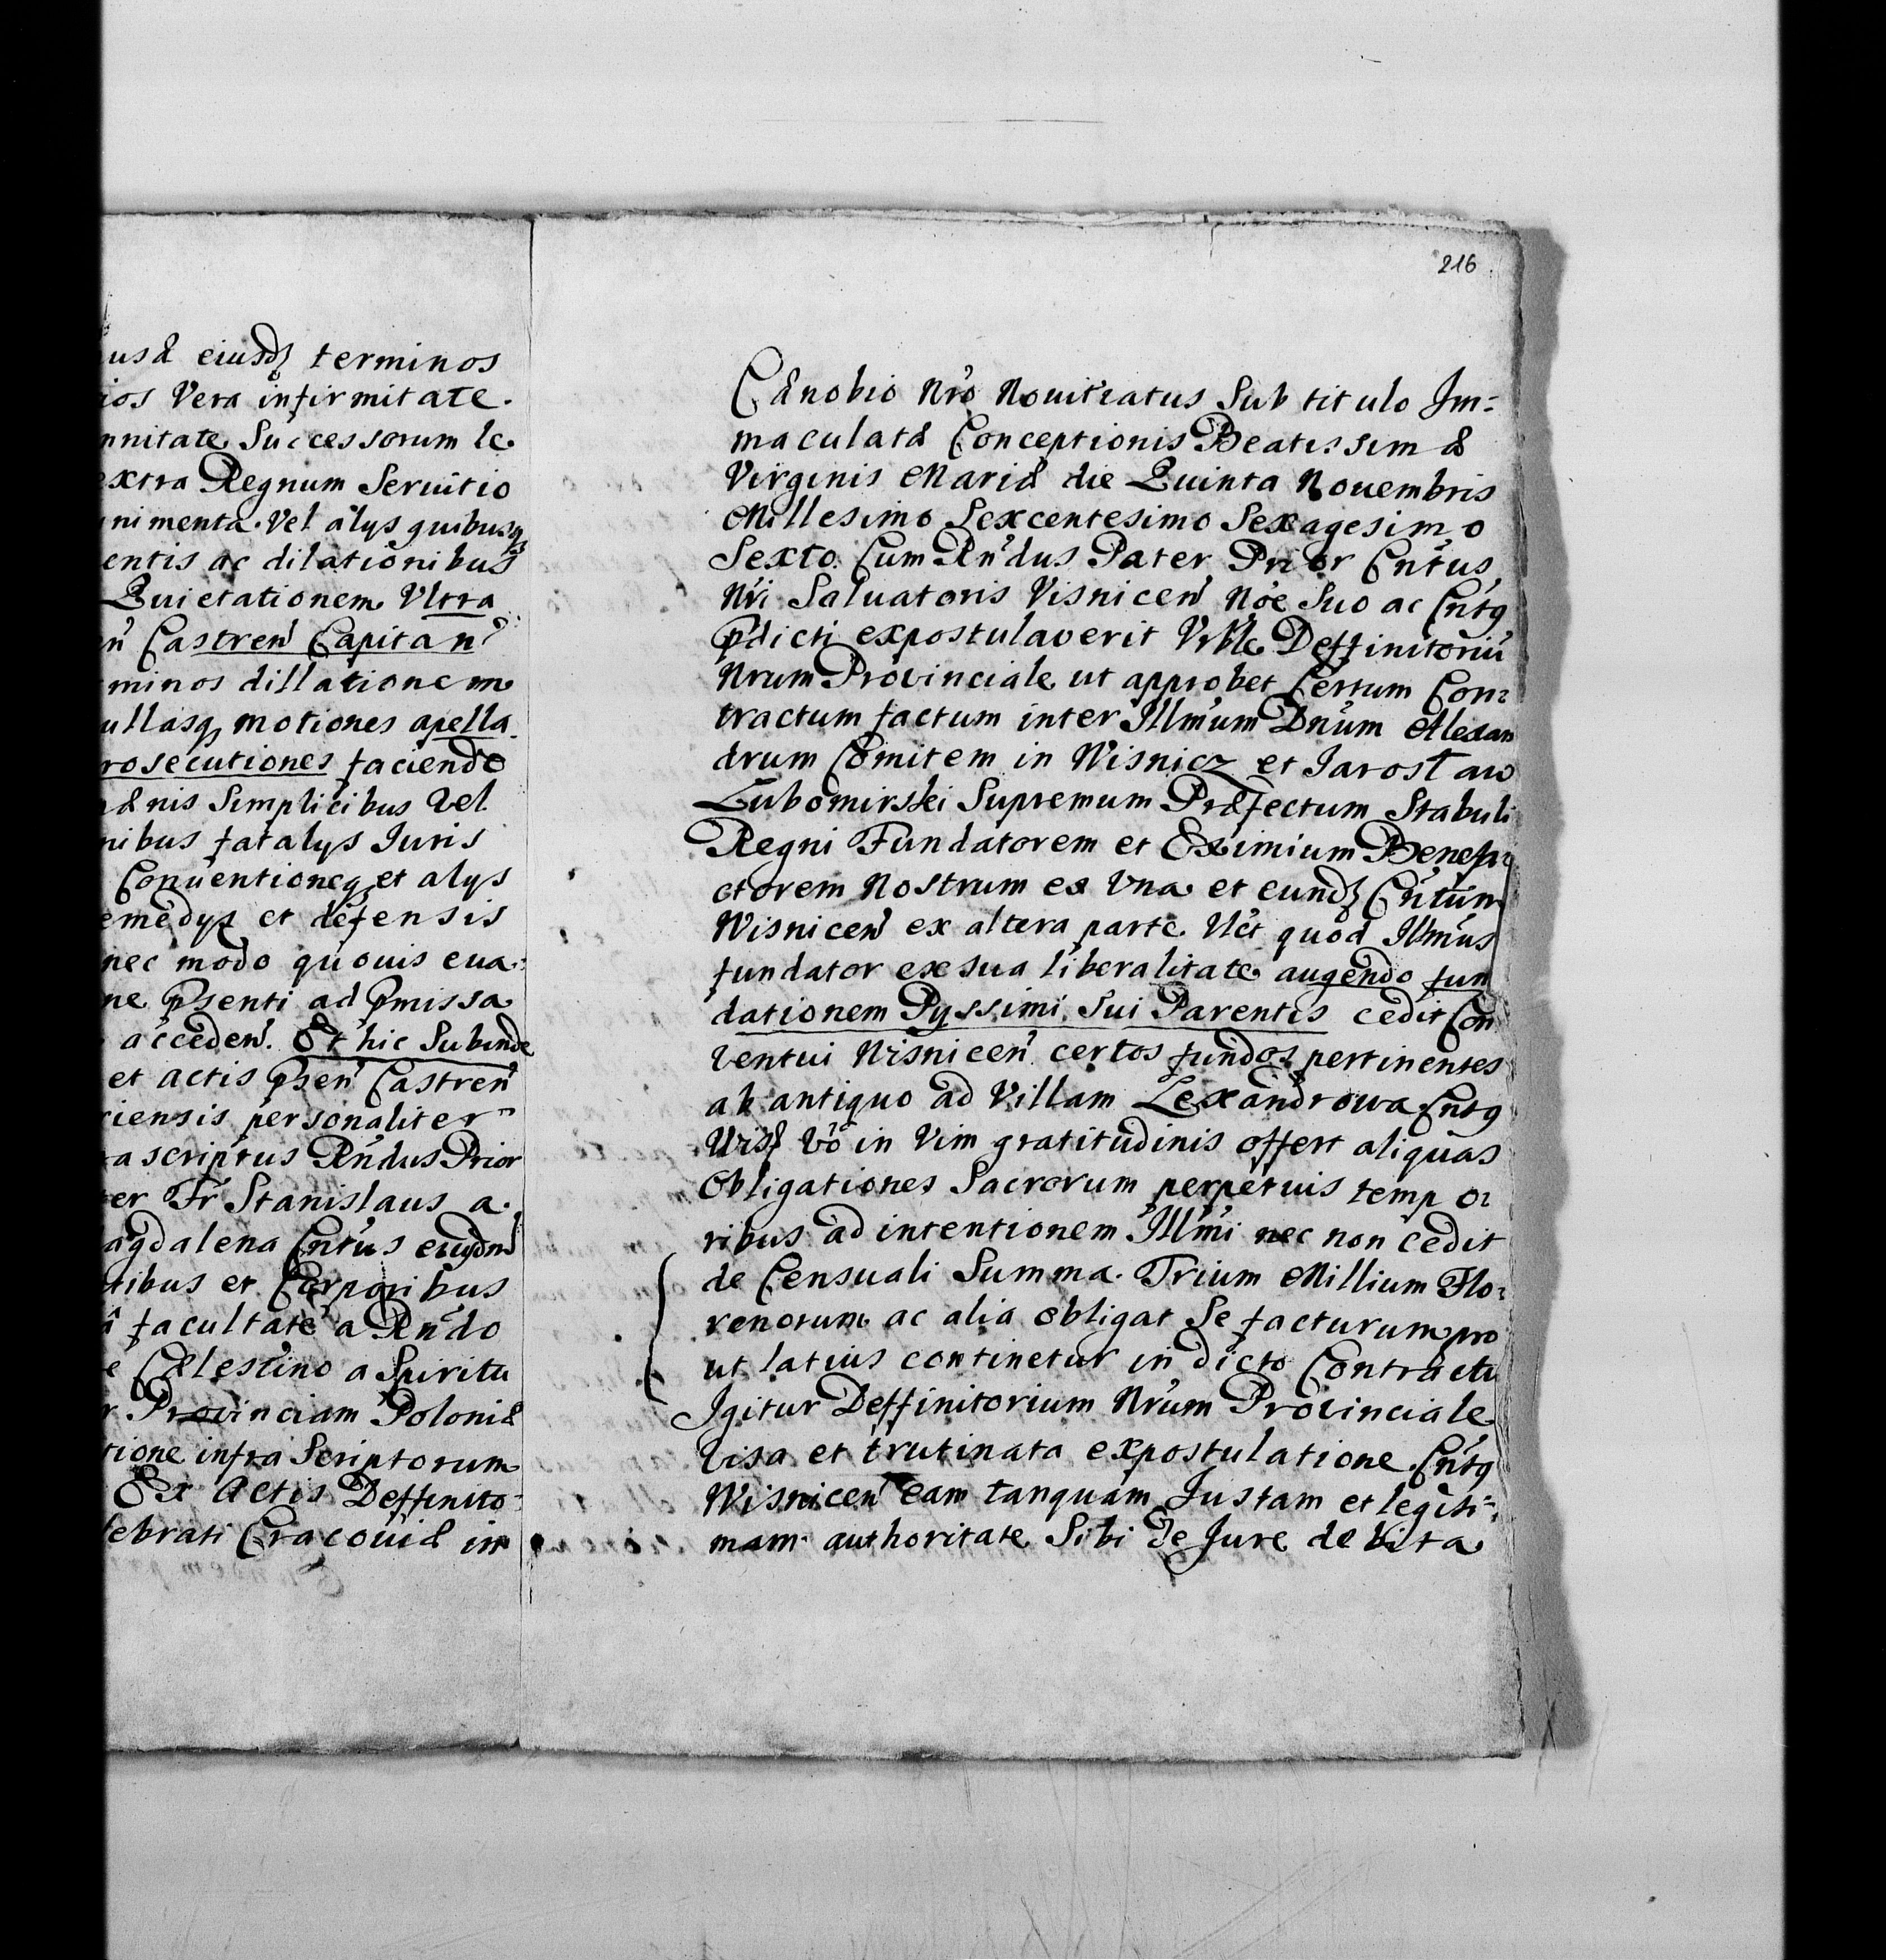 usæ eiusdȝ terminos
ios Vera infirmitate.
nnitate Successorum le.
extra Regnum Seruitio
nimenta. Vel alys quibusqȝ
entis ac dilationibus
Quietationem Vltra
n̄ Castren̄ Capitan̄
minos dillationem
ullasqȝ motiones apella
rosecutiones faciendo
ænis Simplicibus Vel
nibus fatalys Iuris
Conuentioneqȝ et alys
emedys et defensis
nec modo quouis eua:
ne p̄senti ad p̄missa
acceden̄. Et hic Subinde
et actis p̄sen̄ Castren̄
riensis personaliter
a scriptus Rn̄dus Prior
ter Fr Stanislaus a.
agdalena Cn̄tus eiusdm̄
tibus et Corporibus
facultate a Rn̄do
e Cælestino a Spiritu
r Prouinciam Poloniæ
tione infra Scriptorum
Ex Actis Deffinito-
lebrati Cracouiæ in
216
Cænobio Nr̄o Nouitiatus Sub titulo Im=
maculatæ Conceptionis Beatissimæ
Virginis Mariæ die Quinta Nouembris
Millesimo Sexcentesimo Sexagesimo
Sexto. Cum Rn̄dus Pater Prior Cn̄tus
Nr̄i Saluatoris Visnicen̄ Nōe Suo ac Cn̄tq
p̄dicti expostulaverit Vrble Deffinitoriū
Nrum Provinciale ut approbet Certum Con=
tractum factum inter Illm̄um Dn̄um Alexan
drum Comitem in Wisnicz et Jarosław
Lubomirski Supremum Præfectum Stabuli
Regni Fundatorem et Eximium Benefa=
ctorem Nostrum ex Vna et eundȝ Cn̄tum
Wisnicen̄ ex altera parte. Uct quod Illm̄us
fundator ex sua liberalitate augendo fun
dationem Pyssimi Sui Parentis cedit Con
ventui Wisnicen̄ certos fundos pertinentes
ab antiquo ad Villam Lexandrowa Cn̄tq
Wisȝ vō in Vim gratitudinis offert aliquas
Obligationes Sacrorum perpetuis tempo=
ribus ad intentionem Illm̄i nec non cedit
de Censuali Summa. Trium Millium Flo=
renorum ac alia obligat Se facturum pro
ut latius continetur in dicto Contractu
Igitur Deffinitorium Nr̄um Provinciale
Visa et trutinata expostulatione Cn̄tq
Wisnicen̄ eam tanquam Justam et legiti=
mam authoritate Sibi de Jure debita